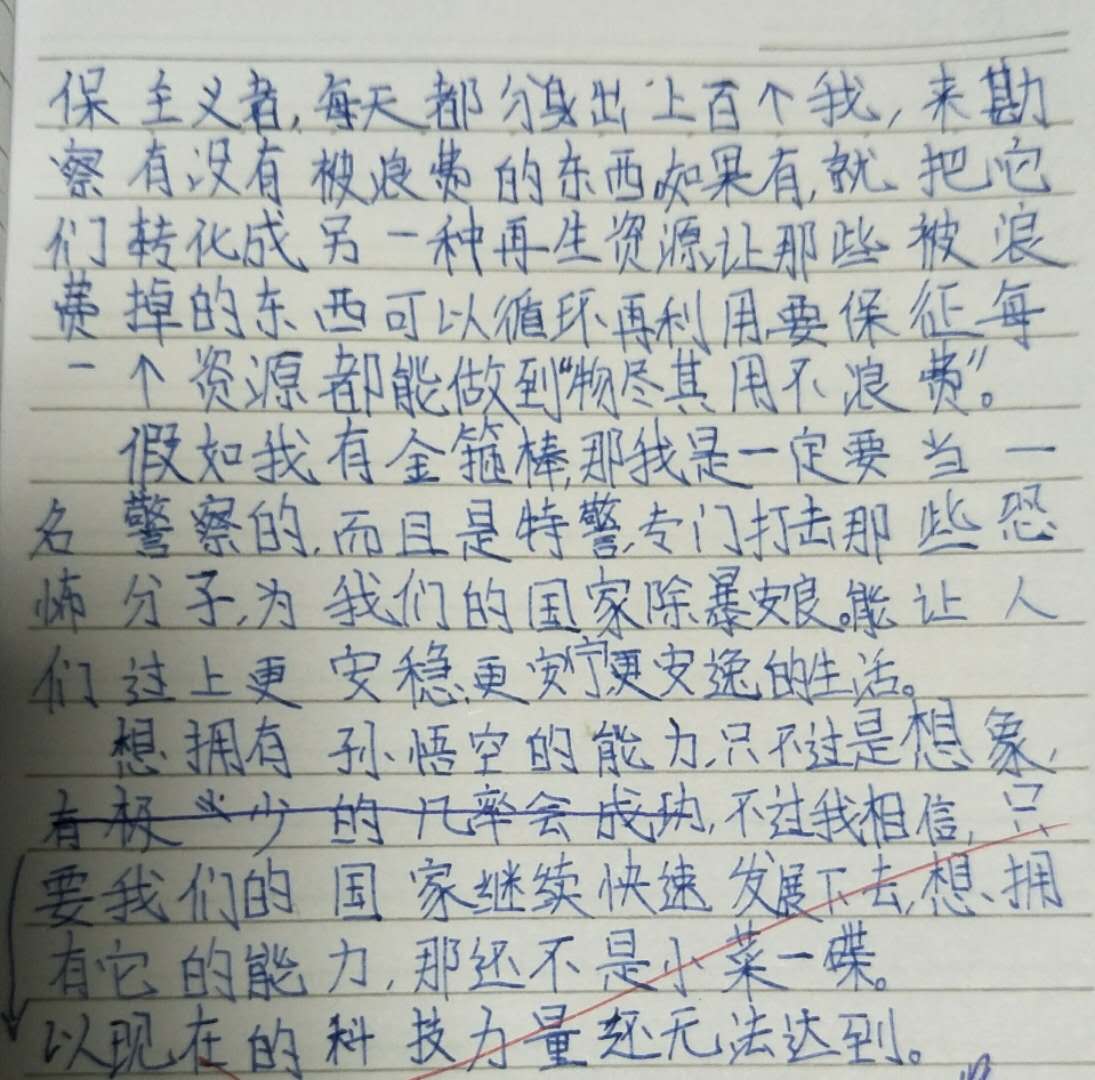 保主义者,每天都分身出上百个我,来勘
察有没有被浪费的东西,如果有,就把它
们转化成另一种再生资源,让那些被浪
费掉的东西可以循环再利用,要保征每
一个资源都能做到“物尽其用不浪费”。
假如我有金箍棒,那我是一定要当一
名警察的,而且是特警,专门打击那些恐
怖分子,为我们的国家除暴安良。能让人
们过上更安稳,更安宁,更安逸的生活。
想拥有孙悟空的能力,只不过是想象,
有极少的几率会成功,不过我相信,只
要我们的国家继续快速发展下去,想拥
有它的能力,那还不是小菜一碟。
以现在的科技力量还无法达到。